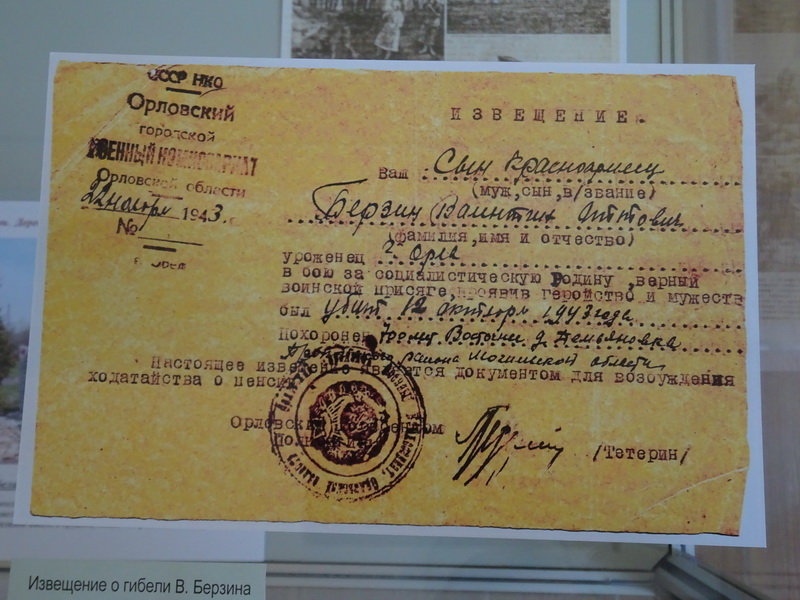 СССР НКО
Орловский
городской
ВОЕННЫЙ КОМИССАРИАТ
Орловской области
22 ноября 1943.г.
№
г. Орел
ИЗВЕЩЕНИЕ.
Ваш Сын красноармеец
(муж,сын,в/звание)
Берзин Валентин
(фамилия,имя и отчество)
уроженец г. Орла
в бою за социалистическую Родину ,верный
воинской присяге,проявив геройство и мужеств
был убит 12 октября 1943 года
Похоронен
района Могилевской области
Настоящее извещение является документом для возбуждения
ходатайства о пенсии
Орловский Военком
/Тетерин/
Извещение о гибели В. Берзина